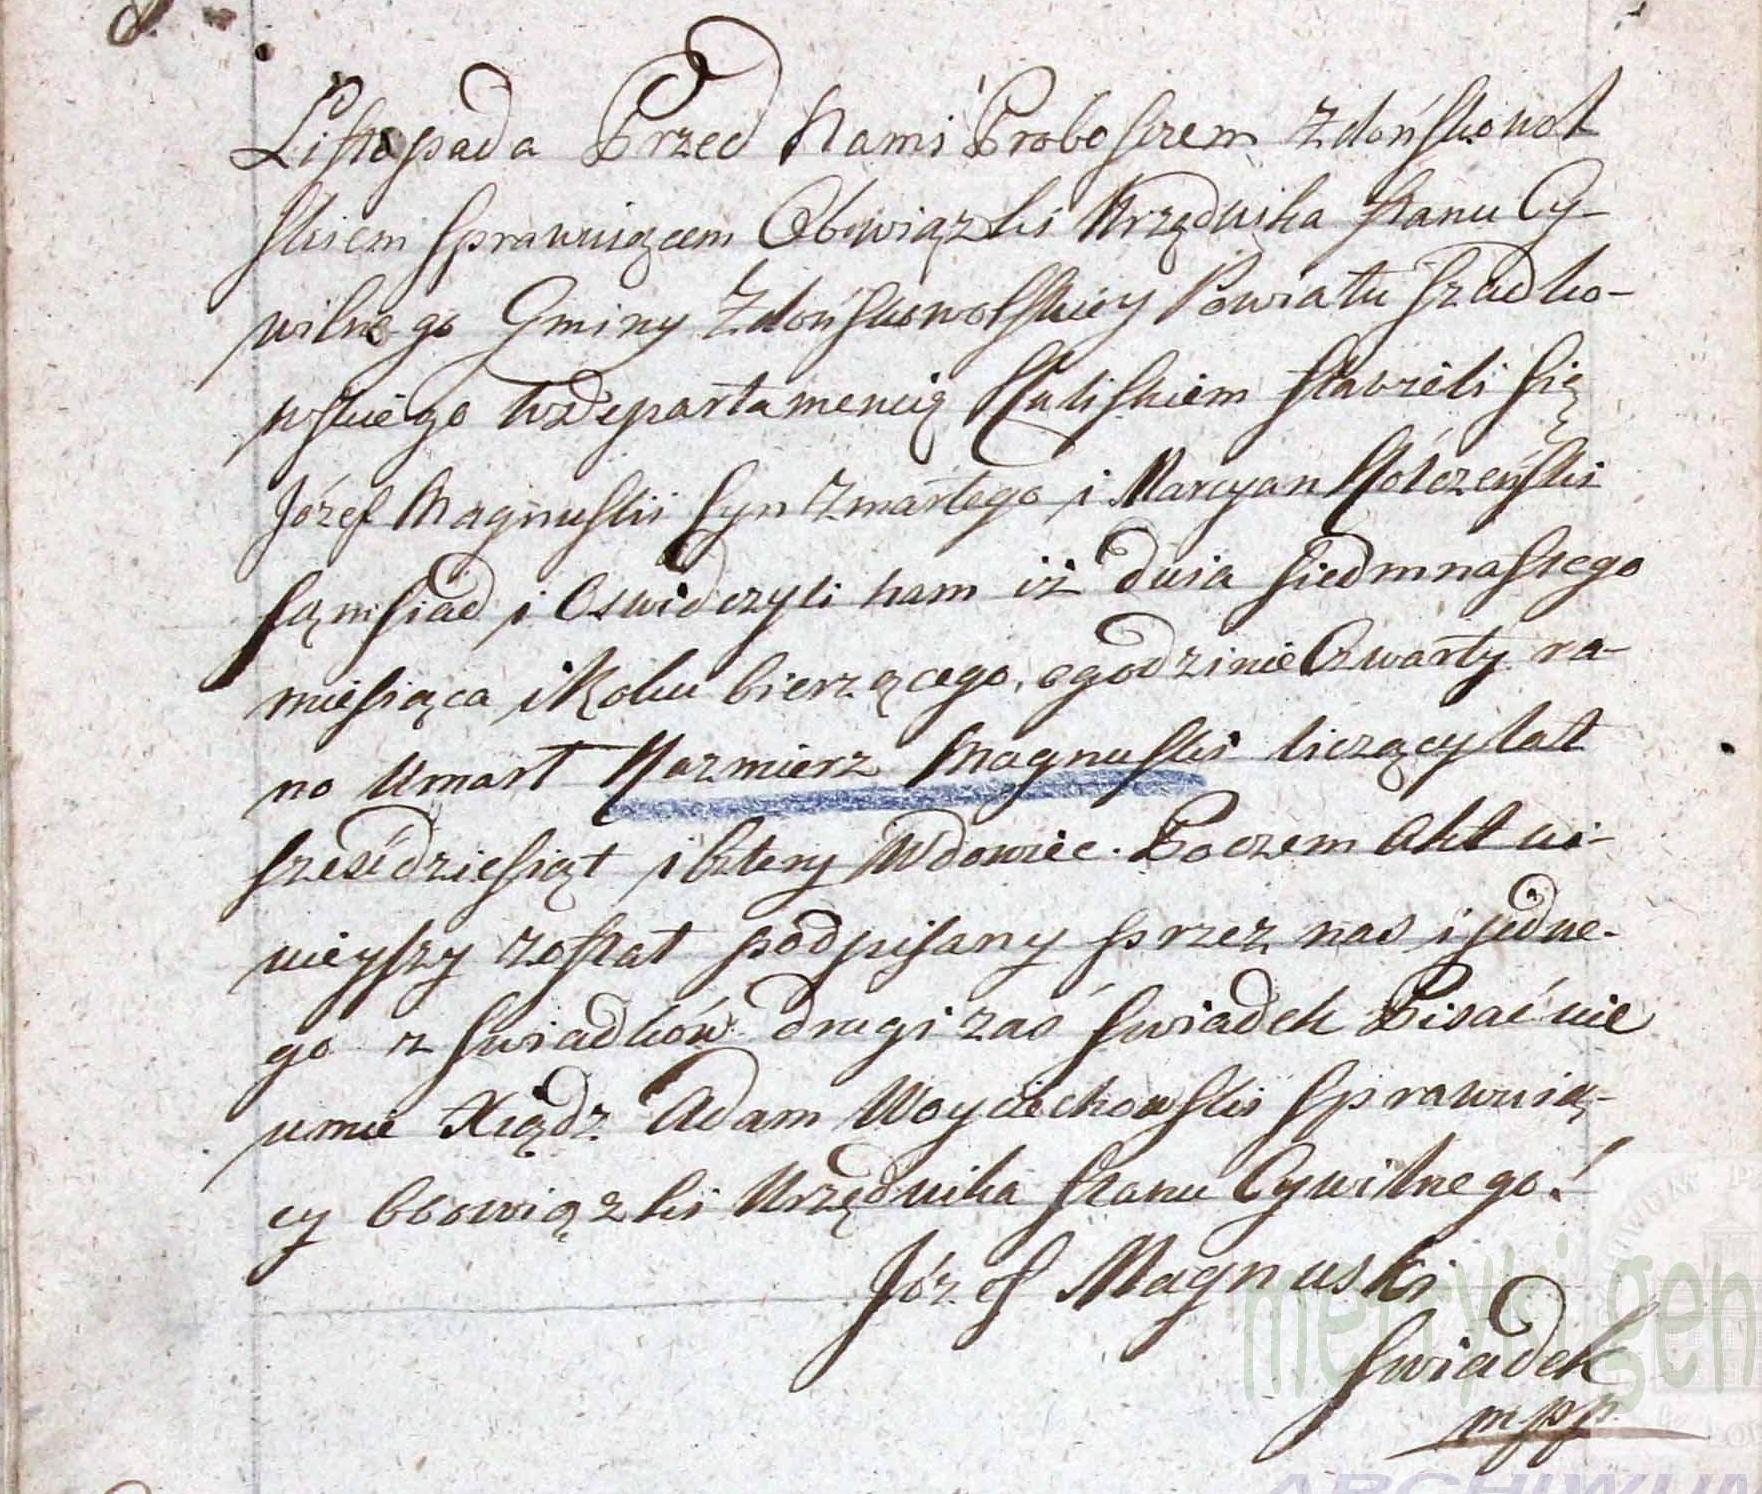 Listopada Przed Nami Proboszczem Zdońskowol
skiem sprawuiącem Obowiązki Urzędnika stanu Cy-
wilnego Gminy Zdońskowolskiey Powiatu Szadko-
wskiego w Departamencię Kaliskiem stawieli się
Józef Magnuskii syn zmarłego i Marcyan Kołczeński
sąmsiad i Oswidczyli nam iż dnia siedmnastego
miesiąca i Roku bierzącego, o godzinie Czwarty ra-
no Umarł Kazmierz Magnuski liczący lat
sześćdziesiąt i cztery Wdowiec. Poczem Akt ni-
nieyszy został podpisany przez nas i jedne-
go z swiadków drugi zaś swiadek Pisać nie
umie Xiądz Adam Woyciechowski sprawuią-
cy Obowiązki Urzędnika stanu Cywilnego!
Józef Magnuski
swiadek
mpp
metryki.gen
ARCHIWUM